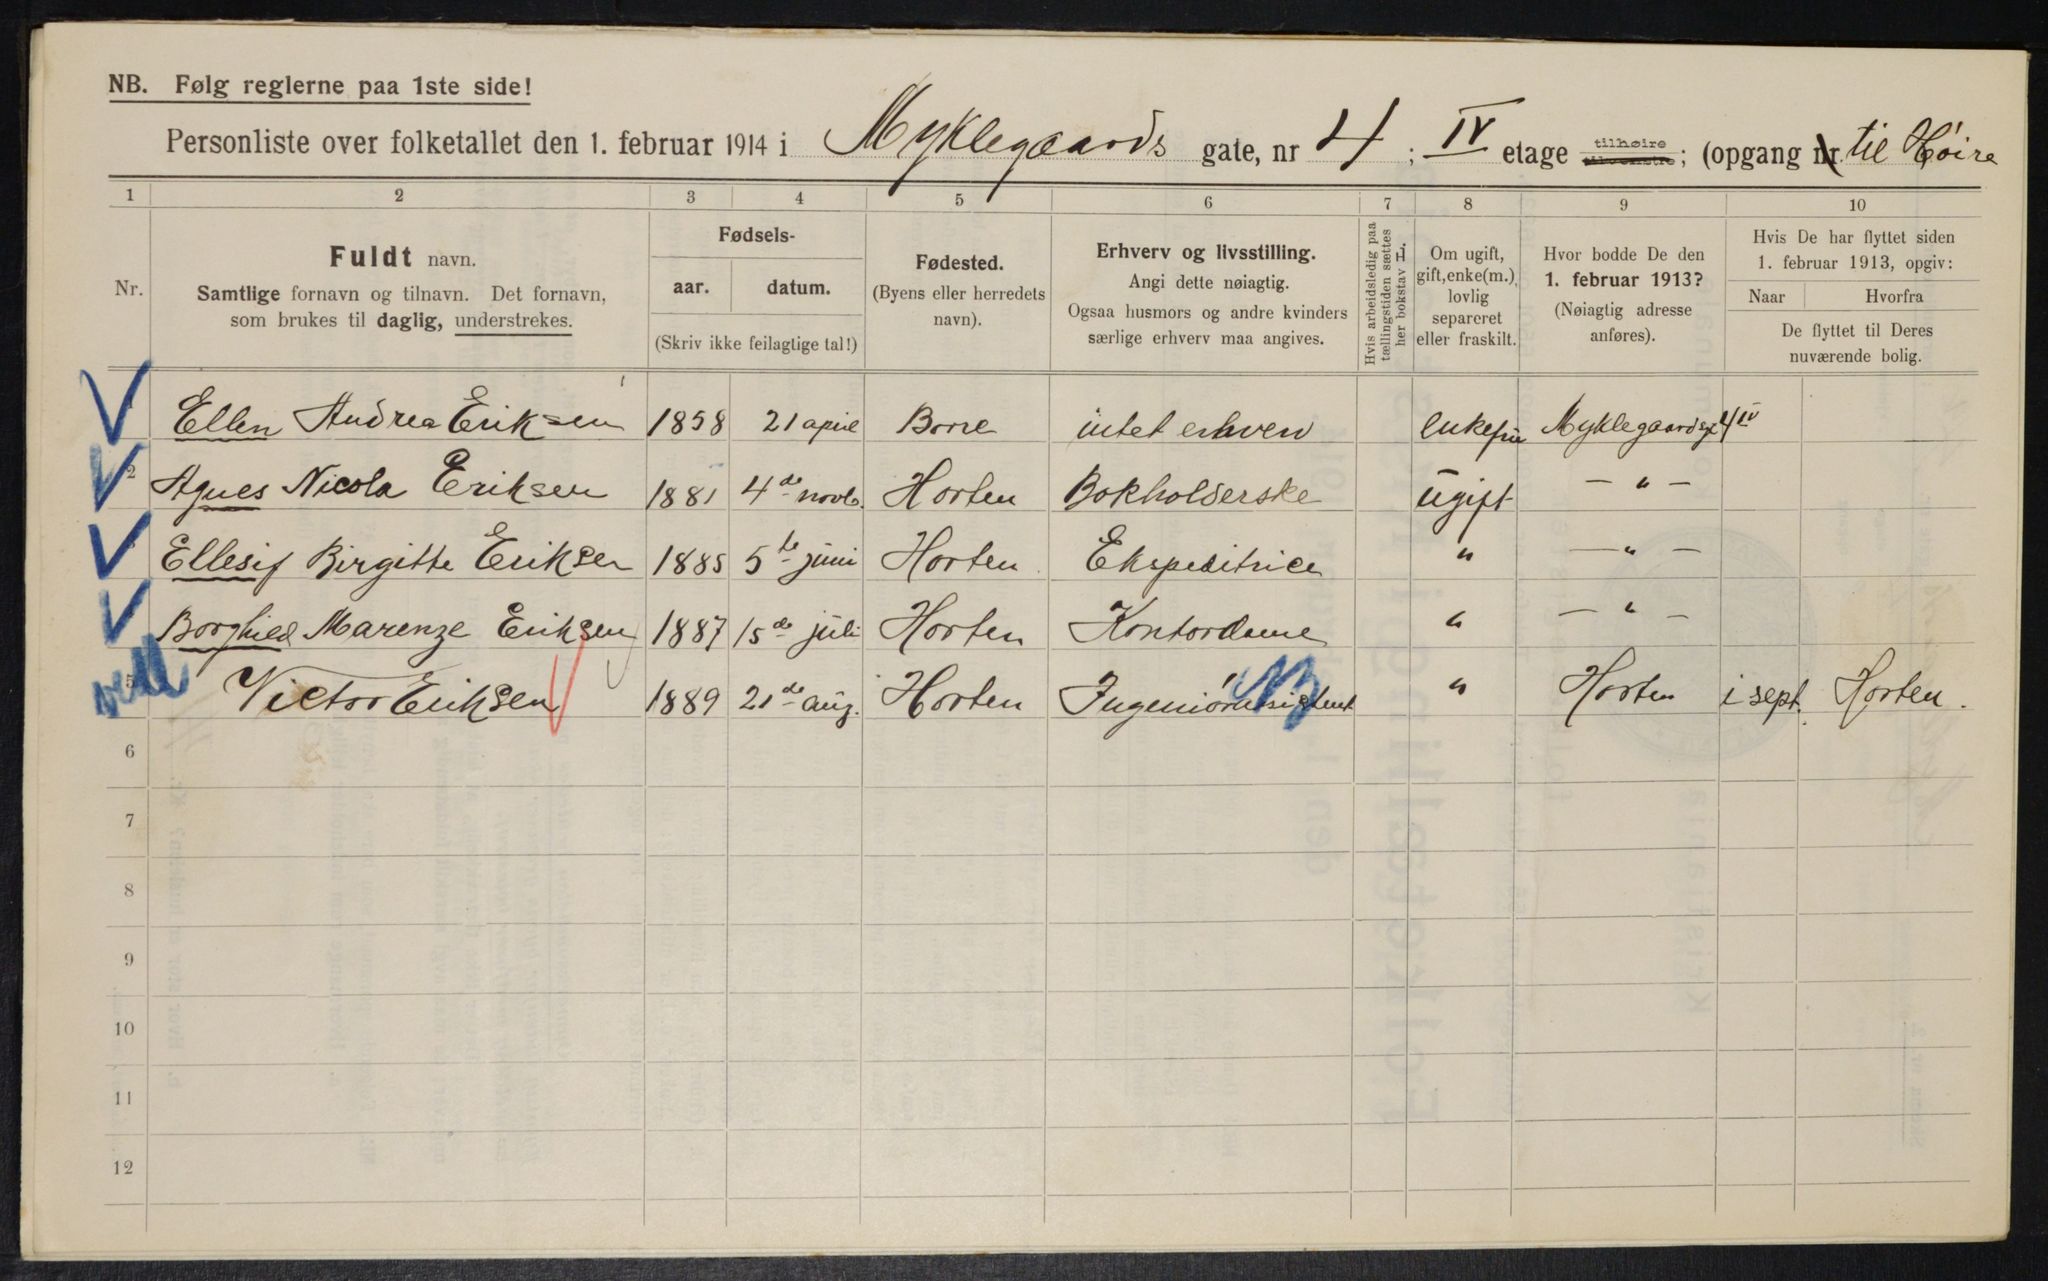 NB. Følg reglerne paa 1ste side!
Personliste over folketallet den 1. februar 1914 i Myklegaards gate, nr 4; IV etage tilhøire tilvenstre; (opgang nr til Høire
1 2 3 4 5 6 7 8 9 10
Nr.
Fuldt navn.
Samtlige fornavn og tilnavn. Det fornavn,
som brukes til daglig, understrekes.
Fødsels-
aar. datum.
(Skriv ikke feilagtige tal!)
Fødested.
(Byens eller herredets
navn).
Erhverv og livsstilling.
Angi dette nøiagtig.
Ogsaa husmors og andre kvinders
særlige erhverv maa angives.
Hvis arbeidsledig paa
tællingstiden sættes
her bokstav L.
Om ugift,
gift, enke(m.),
lovlig
separeret
eller fraskilt.
Hvor bodde De den
1. februar 1913?
(Nøiagtig adresse
anføres).
Hvis De har flyttet siden
1. februar 1913, opgiv:
Naar Hvorfra
De flyttet til Deres
nuværende bolig.
Ellen Andrea Eriksen 1858 21 april Borre intet erhverv enkefru Myklegaardsgt 4 IV
2 Agnes Nicola Eriksen 1881 4de novb. Horten Bokholderske ugift — " —
Ellesif Birgitte Eriksen 1885 5te juni Horten Ekspeditrice " — " —
Borghild Marenze Eriksen 1887 15de juli Horten Kontordame " — " —
5 Victor Eriksen 1889 21de aug. Horten Ingeniørassistent " Horten i sept. Horten.
6
7
8
9
10
11
12